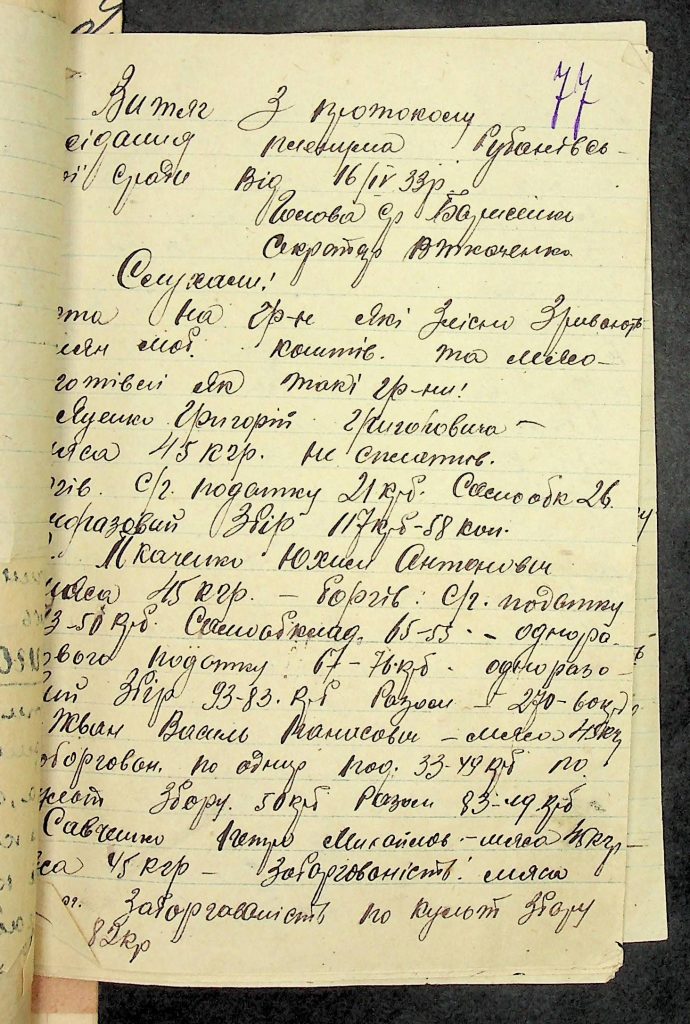 77
Витяг З протоколу
сідання пленума Рубанівсь-
ої с/ради Від 16/IV 33р
Голова С/р
Секретар В Ткаченко
Слухали!
На гр-н які Злісно Зривають
моб. коштів. та мясо-
готівлі як такі гр-ни!
Яценко Григорій Григоровича -
мяса 45 кгр. не сплатив.
ргів. С/г. податку 21 крб. Самообк 26
норазовий Збір 117 крб-58 коп.
Ткаченко Юхим Антонович
мяса 45 кгр. - Боргів: С/г. податку
3-50 крб. Самообклад. 65-55. - однора-
ового податку 67-76 крб. одноразо-
вий Збір 93-83. крб Разом - 270-60 крб
Жван Василь Панасович - мяса 45 кг
оборгован. по однор под. 33-49 крб по
культ Збору. 50 крб Разом 83-49 крб
Савченко Петро Михайлов - мяса 45 кгр-
са 45 кгр - Заборгованість! мяса
Заборгованість по культ Збору
82 кр